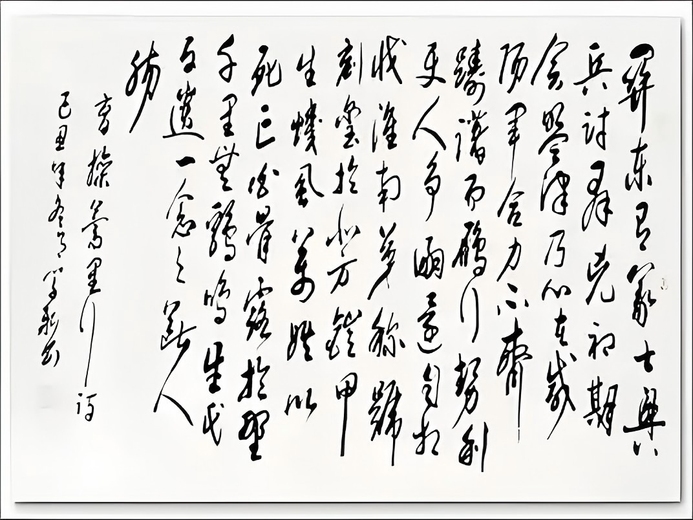 關東有義士興
兵討群兇初期
會盟津乃心在咸
陽軍合力不齊
躊躇而鴈行勢利
使人爭嗣還自相
戕淮南弟稱號
刻璽於北方鎧甲
生蟣虱萬姓以
死亡白骨露於野
千里無鷄鳴生民
百遺一念之斷人
腸
曹操蒿里行詩
己丑年冬月